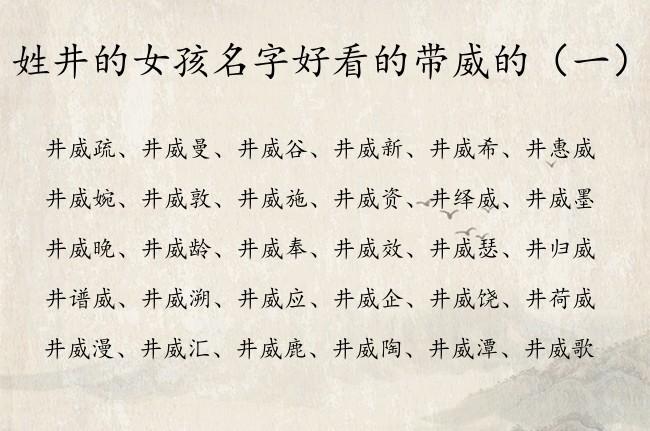 姓井的女孩名字好看的带威的（一）
井威疏、井威曼、井威谷、井威新、井威希、井惠威
井威婉、井威敦、井威施、井威资、井绎威、井威墨
井威晚、井威龄、井威奉、井威效、井威瑟、井归威
井谱威、井威溯、井威应、井威企、井威饶、井荷威
井威漫、井威汇、井威鹿、井威陶、井威潭、井威歌